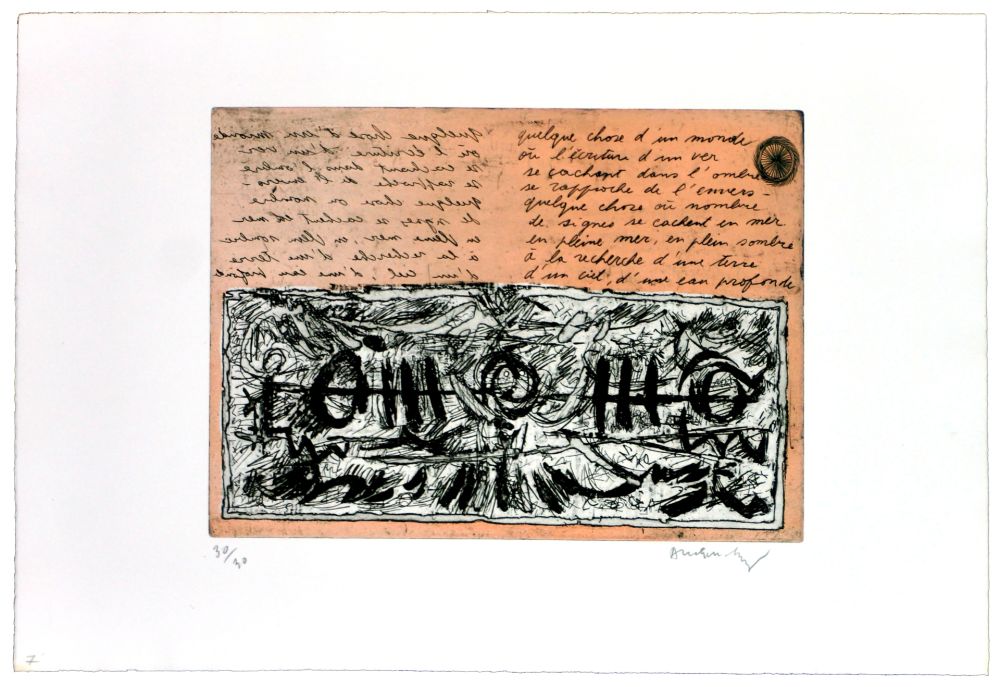 quelque chose d'un monde
où l'écriture d'un ver
se cachant dans l'ombre
se rapproche de l'envers-
quelque chose où nombre
de signes se cachent en mer
en pleine mer, en plein sombre
à la recherche d'une terre
d'un ciel d'une eau
quelque chose d'un monde
où l'écriture d'un ver
se cachant dans l'ombre
se rapproche de l'envers-
quelque chose où nombre
de signes se cachent en mer
en pleine mer, en plein sombre
à la recherche d'une terre
d'un ciel, d'une eau profonde,
30/30
7